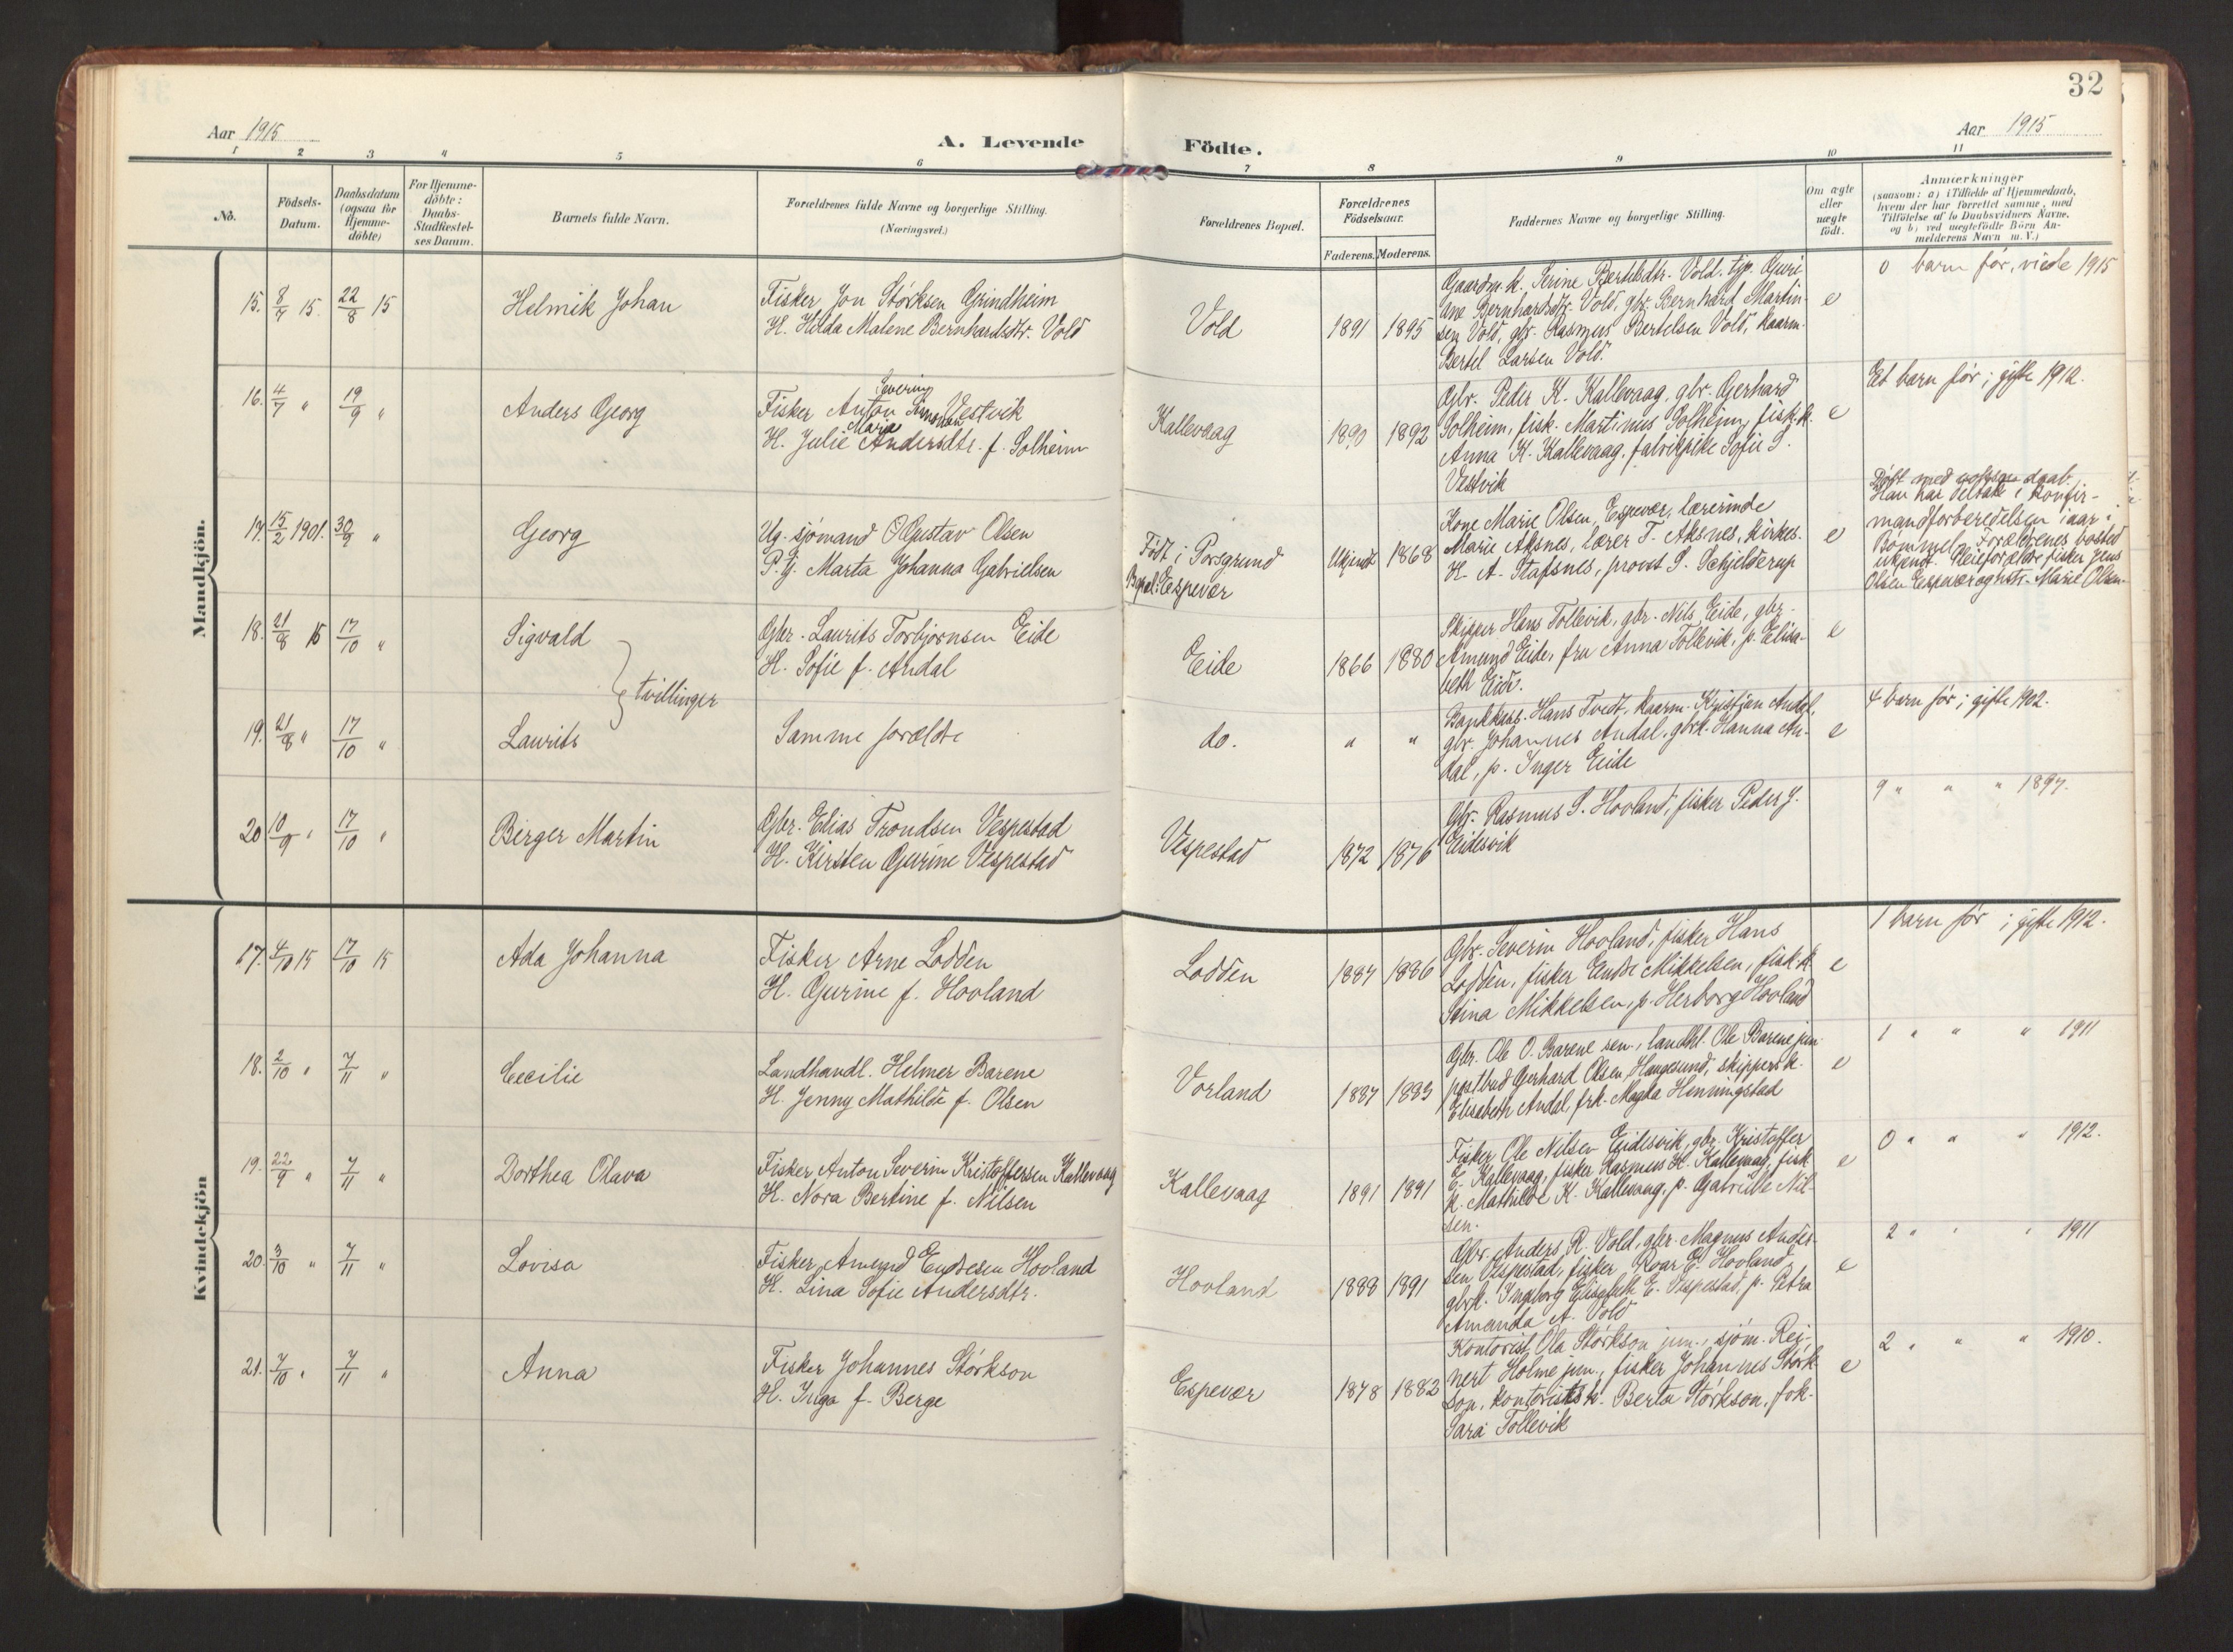 32
Aar 1915
A. Levende
Födte.
Aar 1915
1 2 3 4 5 6 7 8 9 10 11
No.
Födsels-
Datum.
Daabsdatum
(ogsaa for
Hjemme-
döbte)
For Hjemme-
döbte:
Daabs-
Stadfæstel-
ses Datum.
Barnets fulde Navn.
Forældrenes fulde Navne og borgerlige Stilling.
(Næringsvei.)
Forældrenes Bopæl.
Forældrenes
Födselsaar.
Faderens. Moderens.
Faddernes Navne og borgerlige Stilling.
Om ægte
eller
uægte
födt.
Anmærkninger
(saasom: a) i Tilfælde af Hjemmedaab,
hvem der har forrettet samme, med
Tilföielse af to Daabsvidners Navne,
og b) ved uægtefödte Börn An-
melderens Navn m. V.)
Mandkjön.
15. 8/7 15. 22/8 15
Helmik Johan
Fisker Jon Størksen Grindheim
H. Hilda Malene Bernhardsdtr. Vold
Vold
1891 1895
Gaardm. k. Serine Bertelsdtr. Vold, tjp. Guri-
ane Bernhardsdtr. Vold, gbr. Bernhard Martin-
sen Vold, gbr. Rasmus Bertelsen Vold, kaarm.
Bertel Larsen Vold.
e
0 barn før, viede 1915
16. 4/7 " 19/9 "
Anders Georg
Severin
Fisker Anton Simonsen Vestvik
Maria
H. Julie Andersdtr. f. Solheim
Kallevaag
1890 1892
Gbr. Peder K. Kallevaag, gbr. Gerhard
Solheim, fisk. Martinus Solheim, fisk. k.
Anna K. Kallevaag, fabrikpike Sofie S.
Vestvik
e
Et barn før; gifte 1912.
17. 15/2 1901. 30/9 "
Georg
Ug. sjømand O Gustav Olsen
P. g. Marta Johanna Gabrielsen
Født i Porsgrund
Bopæl: Espevær
Ukjendt 1868
Kone Marie Olsen, Espevær, lærerinde
Marie Aksnes, lærer T. Aksnes, kirkes.
H. A. Stafsnes, provst S. Schjelderup
e
Døbt med voksen daab.
Han har deltat i konfir-
mandforberedelsen iaar i
Bømmel. Forældrenes bosted
ukjendt. Pleieforældre fisker Jens
Olsen Espevær og hstr. Marie Olsen.
18. 21/8 15 17/10 "
Sigvald
Gbr. Laurits Torbjørnsen Eide
H. Sofie f. Andal
Eide
1866 1880
Skipper Hans Tollevik, gbr. Nils Eide, gbr.
Amund Eide, fru Anna Tollevik, p. Elisa-
beth Eide.
e
tvillinger
19. 21/8 " 17/10 "
Laurits
Samme forældre
do.
" "
Bankkass. Hans Tvedt, kaarm. Kristjan Andal,
gbr. Johannes Andal, gbrk. Hanna An-
dal, p. Inger Eide
e
4 barn før; gifte 1902.
20 10/9 " 17/10 "
Birger Martin
Gbr. Elias Trondsen Vespestad
H. Kirsten Gurine Vespestad
Vespestad
1872 1876
Gbr. Rasmus S. Hovland, fisker Peder J.
Eidesvik
9 " " " 1897.
Kvindekjön
17. 4/10 15 17/10 15
Ada Johanna
Fisker Arne Lodden
H. Gurine f. Hovland
Lodden
1887 1886
Gbr. Severin Hovland, fisker Hans
Lodden, fisker Endre Mikkelsen, fisk. k.
Stina Mikkelsen, p. Herborg Hovland
e
1 barn før; gifte 1912.
18. 2/10 " 7/11 "
Cecilie
Landhandl. Helmer Barene
H. Jenny Mathilde f. Olsen
Vorland
1887 1883
Gbr. Ole O. Barene sen., landhl. Ole Barene jun.
postbud Gerhard Olsen, Haugesund, skippers k.
Elisabeth Andal, frk. Magda Henningstad
e
1 " " " 1911
19. 22/9 " 7/11 "
Dorthea Olava
Fisker Anton Severin Kristoffersen Kallevaag
H. Nora Bertine f. Nilsen
Kallevaag
1891 1891
Fisker Ole Nilsen Eidesvik, gbr. Kristoffer
E. Kallevaag, fisker Rasmus K. Kallevaag, fisk.
k. Mathilde K. Kallevaag, p. Gabrielle Nil-
sen.
e
0 " " " 1912.
20. 3/10 " 7/11 "
Lovisa
Fisker Amund Endresen Hovland
H. Lina Sofie Andersdtr.
Hovland
1888 1891
Gbr. Anders R. Vold, gbr. Magnus Ander-
sen Vespestad, fisker Roar E. Hovland,
gbrk. Ingeborg Elisabeth E. Vespestad, p. Petra
Amanda A. Vold
e
2 " " " 1911
21. 7/10 " 7/11 "
Anna
Fisker Johannes Størkson
H. Inga f. Berge
Espevær
1878 1882
Kontorist Ola Størkson jun., sjøm. Rei-
nert Holme jun., fisker Johannes Størk-
son, kontorists k. Berta Størkson, frk.
Sara Tollevik
e
2 " " " 1910.